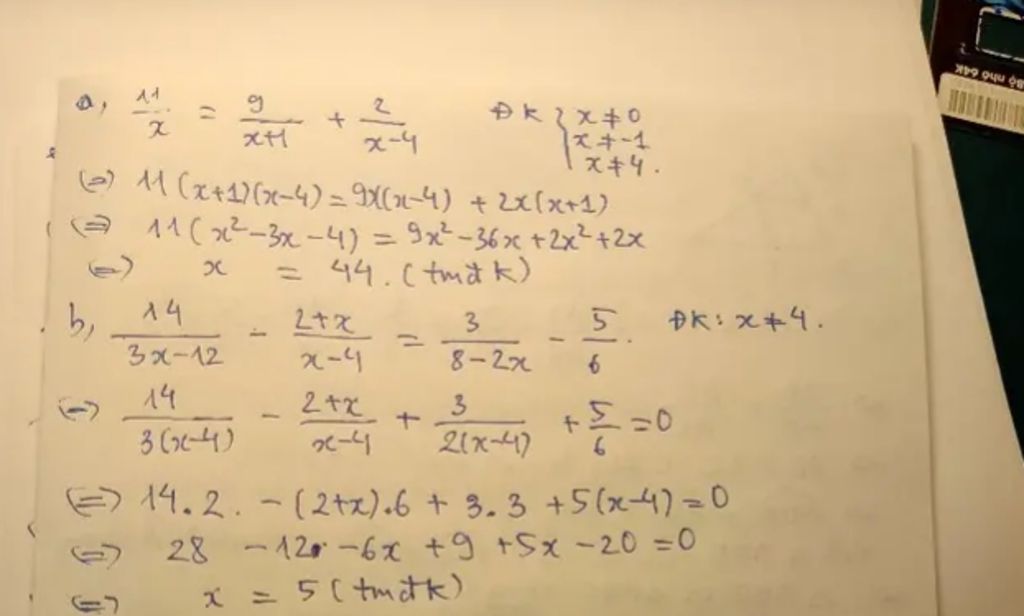 a, 11/x = 9/(x+1) + 2/(x-4) ĐK { x ≠ 0
x ≠ -1
x ≠ 4.
(=) 11(x+1)(x-4) = 9x(x-4) + 2x(x+1)
(=) 11(x²-3x-4) = 9x²-36x+2x²+2x
(=) x = 44. (tmđk)
b, 14/(3x-12) - (2+x)/(x-4) = 3/(8-2x) - 5/6. ĐK: x ≠ 4.
(=) 14/(3(x-4)) - (2+x)/(x-4) + 3/(2(x-4)) + 5/6 = 0
(=) 14.2. - (2+x).6 + 3.3 + 5(x-4) = 0
(=) 28 - 12 - 6x + 9 + 5x - 20 = 0
(=) x = 5 (tmđk)
Bộ nhớ 64K